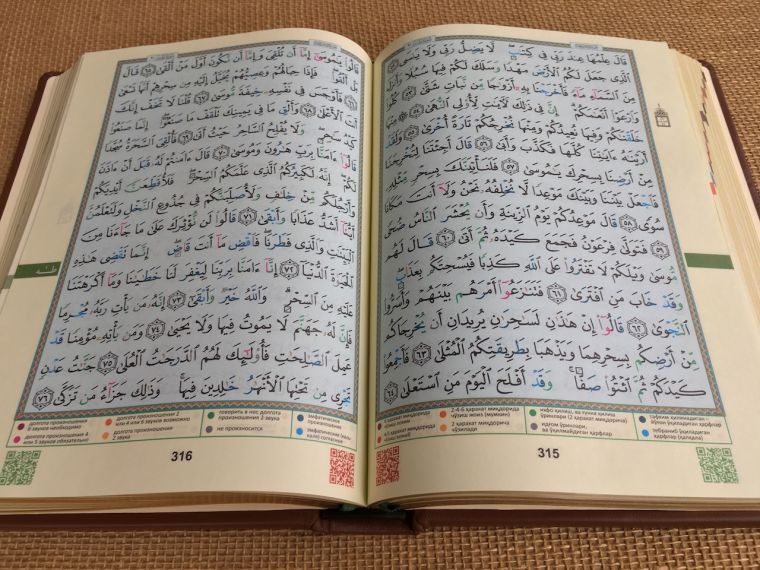 قَالَ عِلْمُهَا عِندَ رَبِّي فِي كِتَٰبٍ ۖ لَّا يَضِلُّ رَبِّي وَلَا يَنسَى ٥٢
ٱلَّذِي جَعَلَ لَكُمُ ٱلْأَرْضَ مَهْدًا وَسَلَكَ لَكُمْ فِيهَا سُبُلًا وَأَنزَلَ
مِنَ ٱلسَّمَآءِ مَآءً فَأَخْرَجْنَا بِهِۦٓ أَزْوَٰجًا مِّن نَّبَاتٍ شَتَّىٰ ٥٣ كُلُوا۟
وَٱرْعَوْا۟ أَنْعَٰمَكُمْ ۗ إِنَّ فِي ذَٰلِكَ لَءَايَٰتٍ لِّأُو۟لِي ٱلنُّهَىٰ ٥٤ مِنْهَا
خَلَقْنَٰكُمْ وَفِيهَا نُعِيدُكُمْ وَمِنْهَا نُخْرِجُكُمْ تَارَةً أُخْرَىٰ ٥٥ وَلَقَدْ
أَرَيْنَٰهُ ءَايَٰتِنَا كُلَّهَا فَكَذَّبَ وَأَبَىٰ ٥٦ قَالَ أَجِئْتَنَا لِتُخْرِجَنَا
مِنْ أَرْضِنَا بِسِحْرِكَ يَٰمُوسَىٰ ٥٧ فَلَنَأْتِيَنَّكَ بِسِحْرٍ مِّثْلِهِۦ
فَٱجْعَلْ بَيْنَنَا وَبَيْنَكَ مَوْعِدًا لَّا نُخْلِفُهُۥ نَحْنُ وَلَآ أَنتَ مَكَانًا
سُوًى ٥٨ قَالَ مَوْعِدُكُمْ يَوْمُ ٱلزِّينَةِ وَأَن يُحْشَرَ ٱلنَّاسُ ضُحًى
٥٩ فَتَوَلَّىٰ فِرْعَوْنُ فَجَمَعَ كَيْدَهُۥ ثُمَّ أَتَىٰ ٦٠ قَالَ لَهُم
مُّوسَىٰ وَيْلَكُمْ لَا تَفْتَرُوا۟ عَلَى ٱللَّهِ كَذِبًا فَيُسْحِتَكُم بِعَذَابٍ ۖ
وَقَدْ خَابَ مَنِ ٱفْتَرَىٰ ٦١ فَتَنَٰزَعُوٓا۟ أَمْرَهُم بَيْنَهُمْ وَأَسَرُّوا۟
ٱلنَّجْوَىٰ ٦٢ قَالُوٓا۟ إِنْ هَٰذَٰنِ لَسَٰحِرَٰنِ يُرِيدَانِ أَن يُخْرِجَاكُم
مِّنْ أَرْضِكُم بِسِحْرِهِمَا وَيَذْهَبَا بِطَرِيقَتِكُمُ ٱلْمُثْلَىٰ ٦٣ فَأَجْمِعُوا۟
كَيْدَكُمْ ثُمَّ ٱئْتُوا۟ صَفًّا ۚ وَقَدْ أَفْلَحَ ٱلْيَوْمَ مَنِ ٱسْتَعْلَىٰ ٦٤
315
قَالُوا۟ يَٰمُوسَىٰٓ إِمَّآ أَن تُلْقِيَ وَإِمَّآ أَن نَّكُونَ أَوَّلَ مَنْ أَلْقَىٰ ٦٥ قَالَ
بَلْ أَلْقُوا۟ ۖ فَإِذَا حِبَالُهُمْ وَعِصِيُّهُمْ يُخَيَّلُ إِلَيْهِ مِن سِحْرِهِمْ أَنَّهَا تَسْعَىٰ
٦٦ فَأَوْجَسَ فِي نَفْسِهِۦ خِيفَةً مُّوسَىٰ ٦٧ قُلْنَا لَا تَخَفْ إِنَّكَ
أَنتَ ٱلْأَعْلَىٰ ٦٨ وَأَلْقِ مَا فِي يَمِينِكَ تَلْقَفْ مَا صَنَعُوٓا۟ ۖ إِنَّمَا صَنَعُوا۟
كَيْدُ سَٰحِرٍ ۖ وَلَا يُفْلِحُ ٱلسَّاحِرُ حَيْثُ أَتَىٰ ٦٩ فَأُلْقِيَ ٱلسَّحَرَةُ سُجَّدًا
قَالُوٓا۟ ءَامَنَّا بِرَبِّ هَٰرُونَ وَمُوسَىٰ ٧٠ قَالَ ءَامَنتُمْ لَهُۥ قَبْلَ أَنْ ءَاذَنَ
لَكُمْ ۖ إِنَّهُۥ لَكَبِيرُكُمُ ٱلَّذِي عَلَّمَكُمُ ٱلسِّحْرَ ۖ فَلَأُقَطِّعَنَّ أَيْدِيَكُمْ
وَأَرْجُلَكُم مِّنْ خِلَٰفٍ وَلَأُصَلِّبَنَّكُمْ فِي جُذُوعِ ٱلنَّخْلِ وَلَتَعْلَمُنَّ
أَيُّنَآ أَشَدُّ عَذَابًا وَأَبْقَىٰ ٧١ قَالُوا۟ لَن نُّؤْثِرَكَ عَلَىٰ مَا جَآءَنَا مِنَ
ٱلْبَيِّنَٰتِ وَٱلَّذِي فَطَرَنَا ۖ فَٱقْضِ مَآ أَنتَ قَاضٍ ۖ إِنَّمَا تَقْضِي هَٰذِهِ
ٱلْحَيَوٰةَ ٱلدُّنْيَآ ٧٢ إِنَّآ ءَامَنَّا بِرَبِّنَا لِيَغْفِرَ لَنَا خَطَٰيَٰنَا وَمَآ أَكْرَهْتَنَا
عَلَيْهِ مِنَ ٱلسِّحْرِ ۗ وَٱللَّهُ خَيْرٌ وَأَبْقَىٰٓ ٧٣ إِنَّهُۥ مَن يَأْتِ رَبَّهُۥ مُجْرِمًا
فَإِنَّ لَهُۥ جَهَنَّمَ لَا يَمُوتُ فِيهَا وَلَا يَحْيَىٰ ٧٤ وَمَن يَأْتِهِۦ مُؤْمِنًا قَدْ
عَمِلَ ٱلصَّٰلِحَٰتِ فَأُو۟لَٰٓئِكَ لَهُمُ ٱلدَّرَجَٰتُ ٱلْعُلَىٰ ٧٥ جَنَّٰتُ عَدْنٍ
تَجْرِي مِن تَحْتِهَا ٱلْأَنْهَٰرُ خَٰلِدِينَ فِيهَا ۚ وَذَٰلِكَ جَزَآءُ مَن تَزَكَّىٰ ٧٦
долгота произношения
6 звуков необходимо
долгота произношения
4 и 5 звуков обязательно
долгота произношения 2
или 4 или 6 звуков возможно
долгота произношения
2 звука
говорить в нос долгота
произношения 2 звука
не произносится
эмфатическое
произношение
316